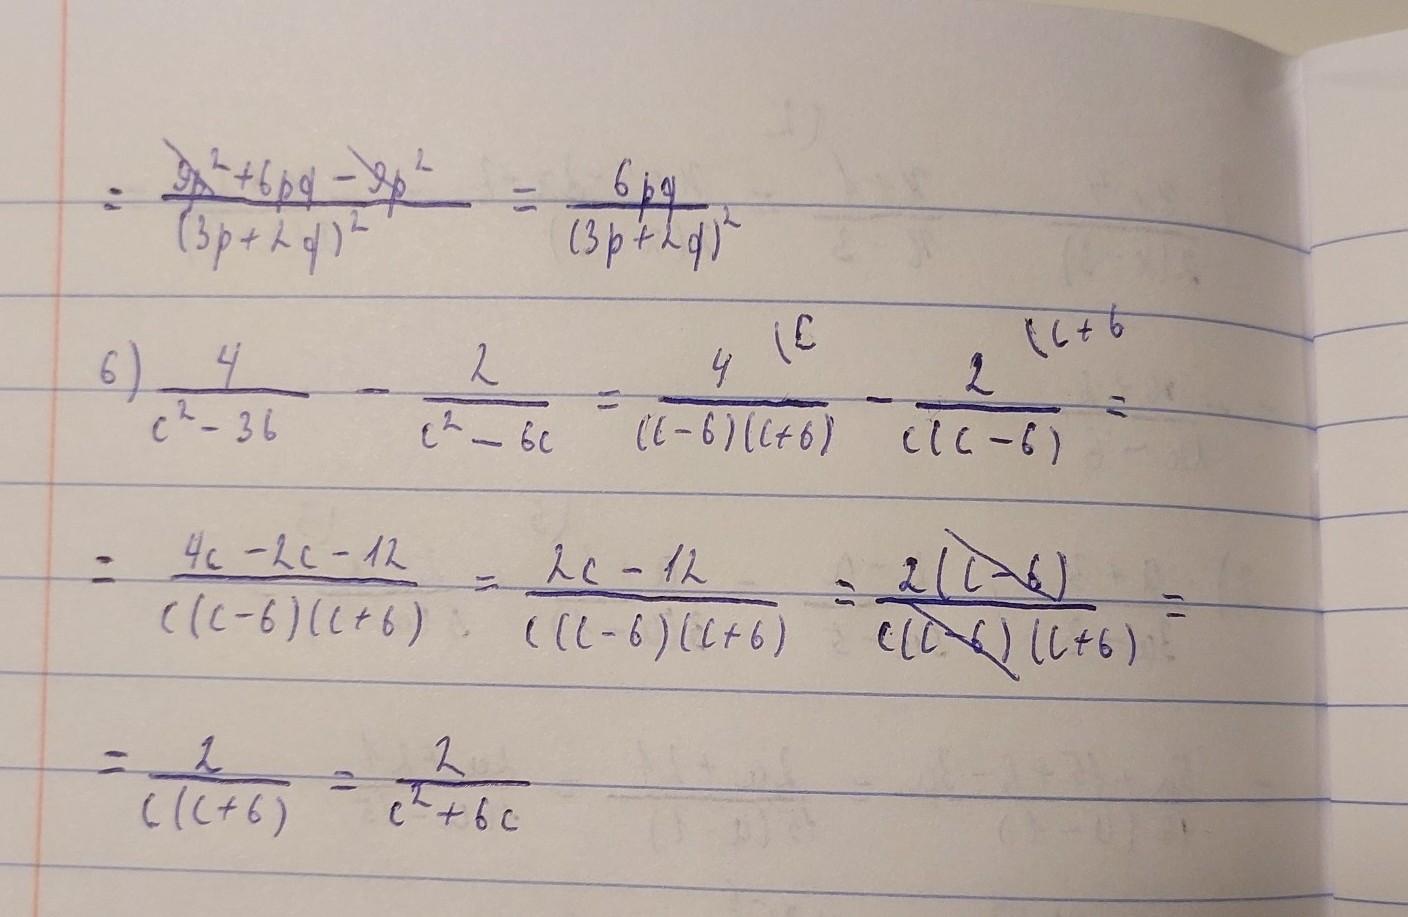 = (9p² + 6pq − 9p²)/(3p + 2q)² = 6pq/(3p + 2q)²
6) 4/(c² − 36) − 2/(c² − 6c) = 4 (c/((c − 6)(c + 6)) − 2 (c + 6/(c(c − 6)) =
= (4c − 2c − 12)/(c(c − 6)(c + 6)) = (2c − 12)/(c(c − 6)(c + 6)) = 2(c − 6)/(c(c − 6)(c + 6)) =
= 2/(c(c + 6)) = 2/(c² + 6c)